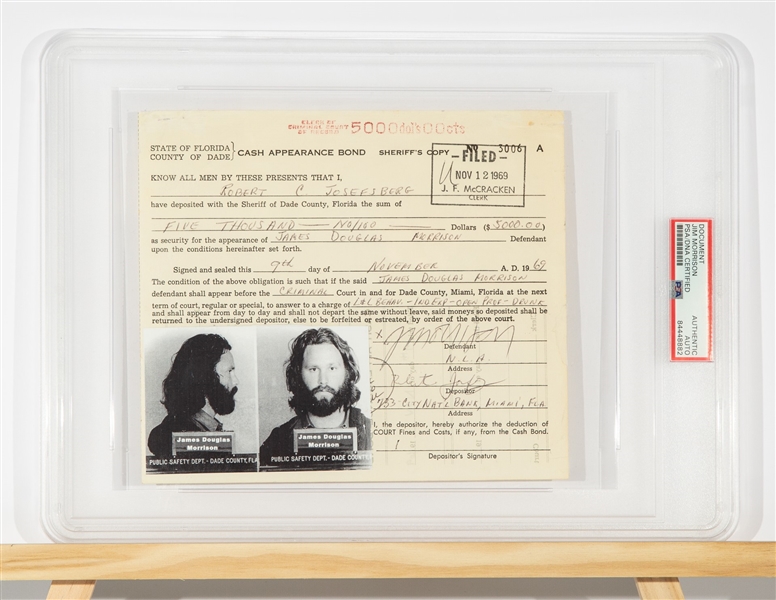 CLERK OF
CRIMINAL COURT
OF RECORD
5000dol's00cts
STATE OF FLORIDA
COUNTY OF DADE
CASH APPEARANCE BOND
SHERIFF'S COPY
No 3006 A
FILED
NOV 12 1969
J. F. McCRACKEN
CLERK
KNOW ALL MEN BY THESE PRESENTS THAT I,
ROBERT C JOSEFSBERG
have deposited with the Sheriff of Dade County, Florida the sum of
FIVE THOUSAND — NO/100 Dollars ($ 5000.00)
as security for the appearance of JAMES DOUGLAS MORRISON Defendant
upon the conditions hereinafter set forth.
Signed and sealed this 9th day of NOVEMBER A. D. 1969
The condition of the above obligation is such that if the said JAMES DOUGLAS MORRISON
defendant shall appear before the CRIMINAL Court in and for Dade County, Miami, Florida at the next
term of court, regular or special, to answer to a charge of L&L BEHAV. - IND EXP - OPEN PROF - DRUNK
and shall appear from day to day and shall not depart the same without leave, said moneys so deposited shall be
returned to the undersigned depositor, else to be forfeited or estreated, by order of the above court.
x
Defendant
N.L.A.
Address
Depositor
CITY NAT'L BANK, MIAMI, FLA
Address
I, the depositor, hereby authorize the deduction of
COURT Fines and Costs, if any, from the Cash Bond.
Depositor's Signature
James Douglas
Morrison
PUBLIC SAFETY DEPT. - DADE COUNTY, FLA
James Douglas
Morrison
PUBLIC SAFETY DEPT. - DADE COUNTY
DOCUMENT
JIM MORRISON
PSA/DNA CERTIFIED
PSA
AUTHENTIC
AUTO
84448882